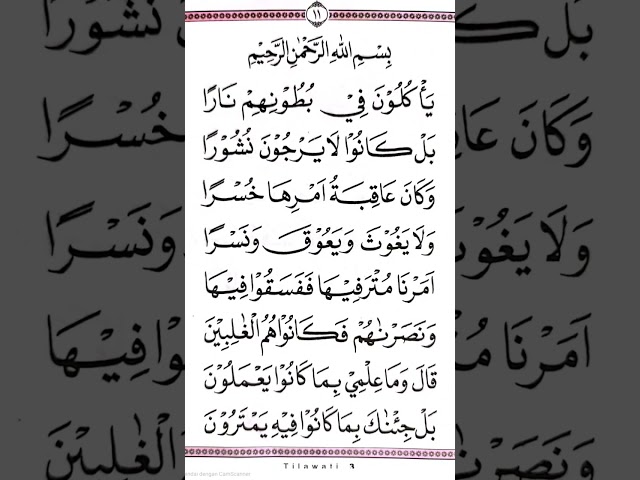 ١١
بِسْمِ اللّٰهِ الرَّحْمٰنِ الرَّحِيْمِ
يَأْكُلُوْنَ فِيْ بُطُوْنِهِمْ نَارًا
بَلْ كَانُوْا لَا يَرْجُوْنَ نُشُوْرًا
وَكَانَ عَاقِبَةُ اَمْرِهَا خُسْرًا
وَلَا يَغُوْثَ وَيَعُوْقَ وَنَسْرًا
اَمَرْنَا مُتْرَفِيْهَا فَفَسَقُوْا فِيْهَا
وَنَصَرْنٰهُمْ فَكَانُوْا هُمُ الْغٰلِبِيْنَ
قَالَ وَمَا عِلْمِيْ بِمَا كَانُوْا يَعْمَلُوْنَ
بَلْ جِئْنٰكَ بِمَا كَانُوْا فِيْهِ يَمْتَرُوْنَ
Tilawati 3
dengan CamScanner